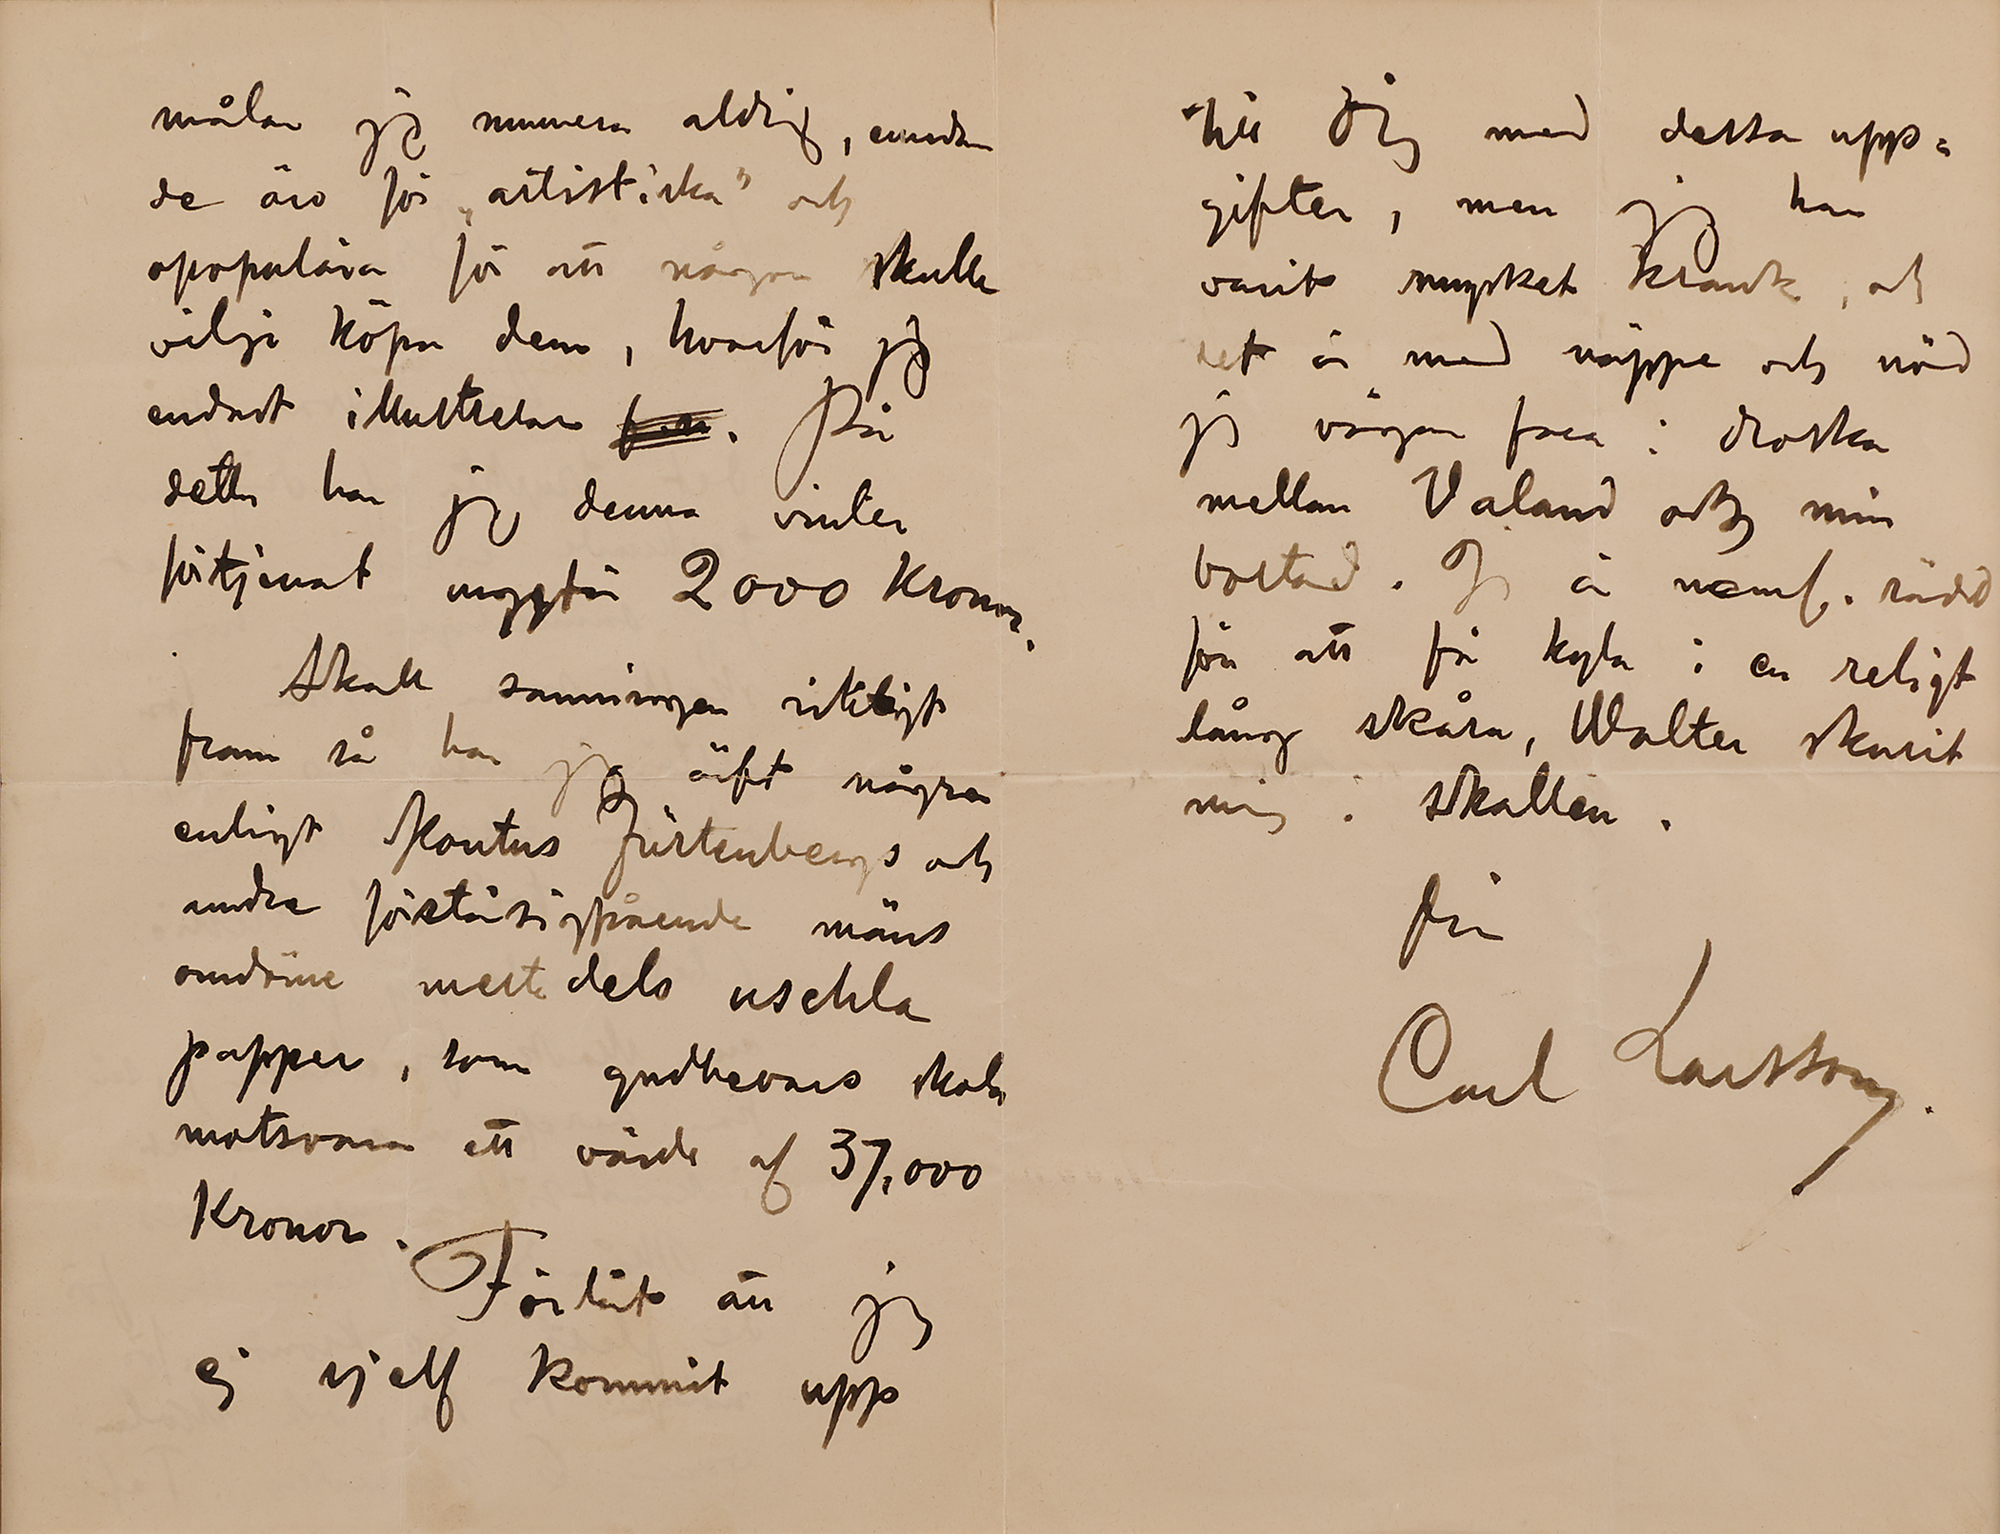 målar jag numera aldrig, emedan
de äro för „artistiska” och
opopulära för att någon skulle
vilja köpa dem, hvarför jag
endast illustrerar . På
detta har jag denna vinter
förtjenat ungefär 2000 Kronor.
Skall sanningen riktigt
fram så har jag ärft några
enligt Pontus Fürstenbergs och
andra förståsigpående mäns
omdöme mestedels uschla
papper, som gudbevars skola
motsvara ett värde af 37,000
Kronor.
Förlåt att jag
ej sjelf kommit upp
till Dig med dessa upp=
gifter, men jag har
varit mycket krank, och
det är med näppe och nöd
jag vågar fara i droska
mellan Valand och min
bostad. Jag är neml. rädd
för att få kyla i en religt
lång skåra, Walter skurit
mig i skallen.
Din
Carl Larsson.